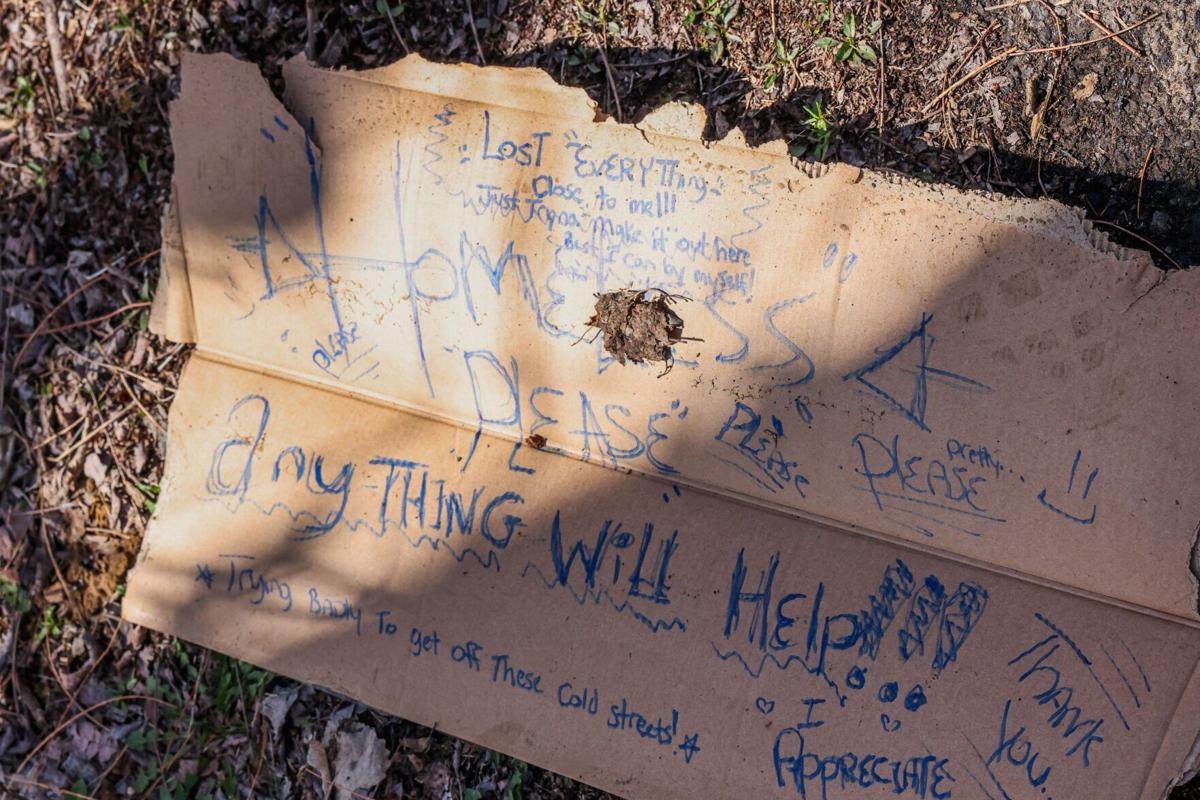 Lost "EVERYThing"
Close to me!!!
Just Tryna Make it out here
Best I can by myself!
HOMELESS
please
PLEASE
PLEASE
pretty..
PLEASE
anyTHING Will Help!!!
* Trying Badly To get off These Cold streets! *
I
APPRECIATE
THANK
YOU.